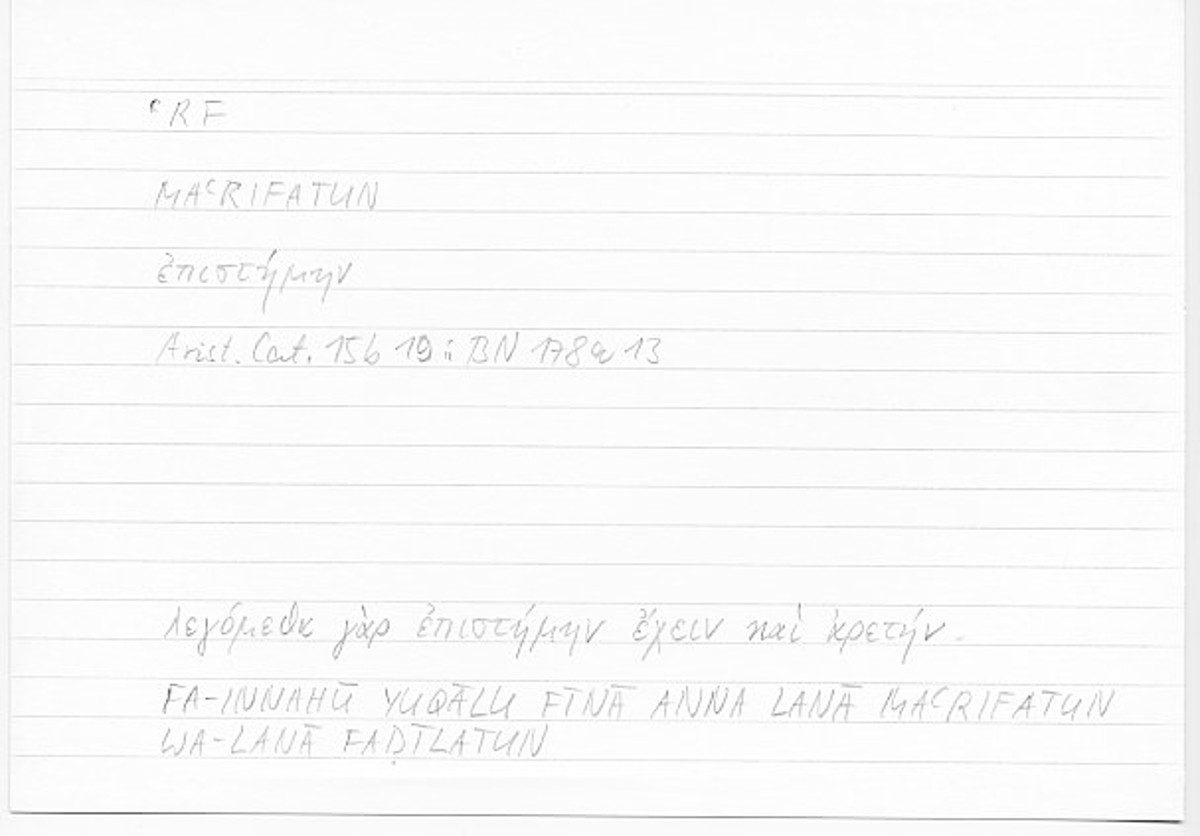 ʿRF
MAʿRIFATUN
ἐπιστήμην
Arist. Cat. 15b 19; BN 178a 13
λεγόμεθα γὰρ ἐπιστήμην ἔχειν καὶ ἀρετήν.
FA-INNAHŪ YUQĀLU FĪNĀ ANNA LANĀ MAʿRIFATUN
WA-LANĀ FAḌĪLATUN